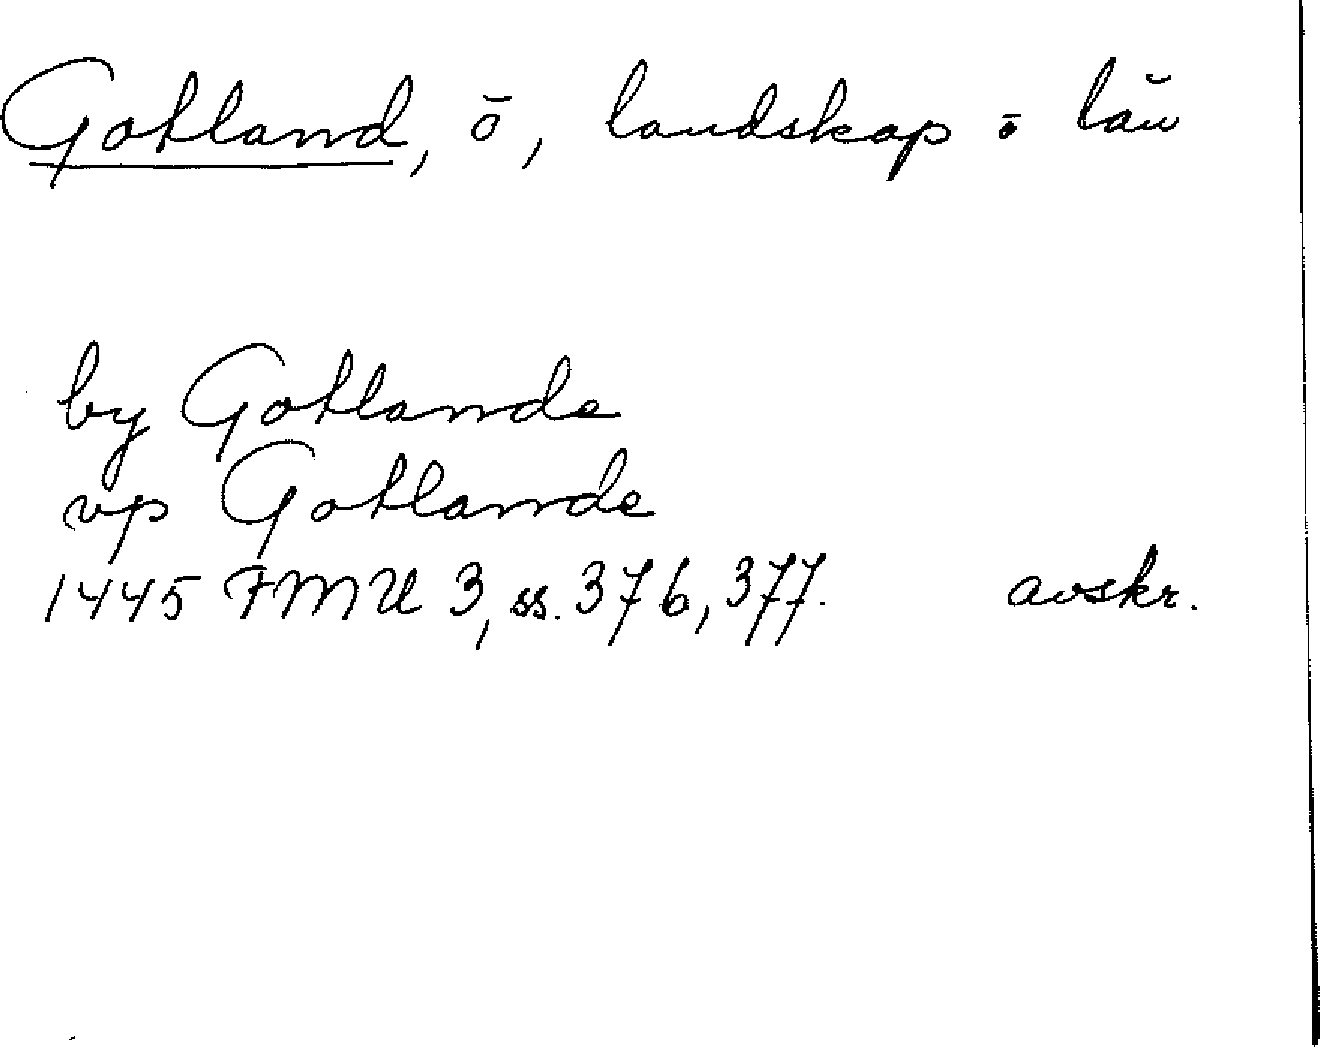 Gotland, ö, landskap o län
by Gotlande
vp Gotlande
1445 FMU 3, ss. 376, 377. avskr.